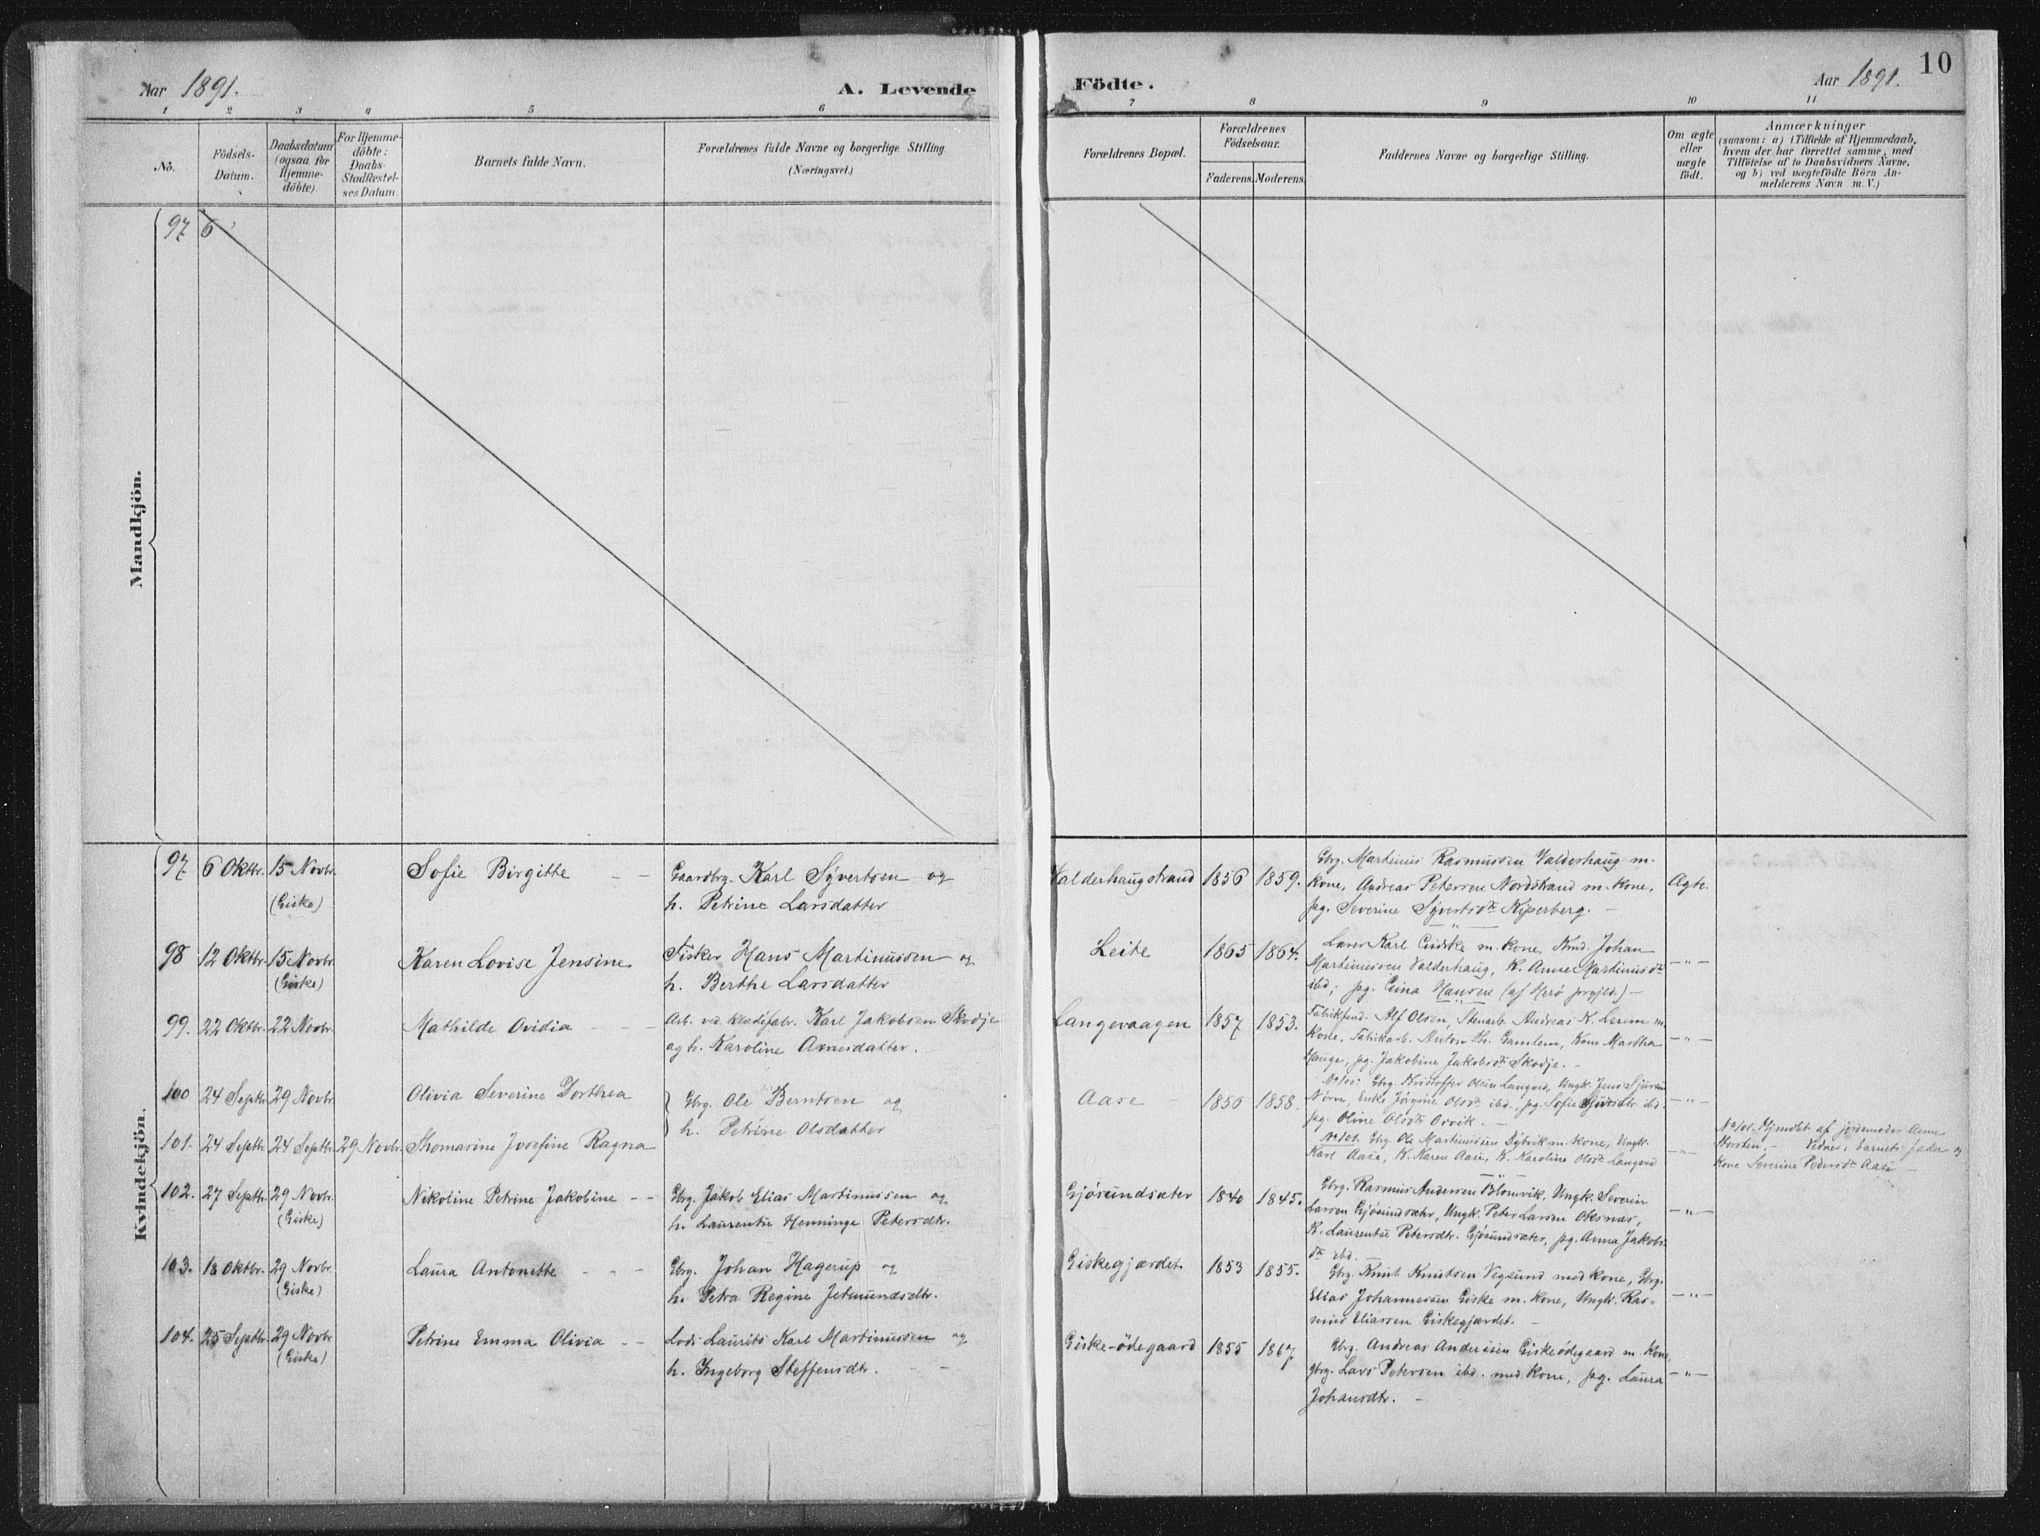 Aar 1891.
A. Levende
Födte.
Aar 1891.
10
1 2 3 4 5 6 7 8 9 10 11
No.
Födsels-
Datum.
Daabsdatum
(ogsaa for
Hjemme-
döbte).
For Hjemme-
döbte:
Daabs-
Stadfestel-
ses Datum
Barnets fulde Navn.
Forældrenes fulde Navne og borgerlige Stilling.
(Næringsvei.)
Forældrenes Bopæl.
Forældrenes
Födselsaar.
Faderens. Moderens.
Faddernes Navne og borgerlige Stilling.
Om ægte
eller
uægte
födt.
Anmærkninger
(saasom: a) i Tilfælde af Hjemmedaab,
hvem der har forrettet samme, med
Tilföielse af to Daabsvidners Navne,
og b) ved uægtefödte Börn An-
melderens Navn m. V.)
Mandkjön.
97 6
Kvindekjön.
97 6 Oktbr. 15 Novbr.
(Giske)
Sofie Birgitte - -
Gaardbrg. Karl Sivertsen og
h. Petrine Larsdatter
Valderhaugstrand 1856 1859.
Gbrg. Martinus Rasmussen Valderhaug m.
kone, Andreas Petersen Nordstrand m. kone,
pg. Severine Sivertsdtr. -
Ægte.
98 12 Oktbr. 15 Novbr.
(Giske)
Karen Lovise Jensine
Fisker Hans Martinussen og
h. Berthe Larsdatter
Leite 1865 1864.
Lærer Karl Giske m. kone, Johan
Martinussen Valderhaug, K. Anne Martinusdtr
ibd; pg. Gina Hansen (af Herö prgjld.) -
- " -
99. 22 Oktbr. 22 Novbr.
Mathilde Ovidia - - -
Arb. ved klædefabr. Karl Jakobsen Skodje
og h. Karoline Arnesdatter. -
Langevaagen 1857 1853.
Alf Olsen, Andreas K. m.
kone, Fabrikarb. Anton Gamlem, kone Martha
Hauge, pg. Jakobine Jakobsdtr Skodje. -
- " -
100 24 Septbr. 29 Novbr.
Olivia Severine Dorthea
Gbrg. Ole Berntsen og
h. Petrine Olsdatter
Aase - 1850 1858.
No 100: Gbrg. Kristoffer Olsen Langved, Ungk. Jens
Nörve, Enke Jörgine Olsdtr ibd., pg. Sofie ibd.
pg. Oline Olsdtr -
- " -
101. 24 Septbr. 24 Septbr. 29 Novbr.
Thomasine Josefine Ragna
No 101. Gbrg. Ole Martinussen Dybvik m. kone, Ungk.
Karl Aase, K. Karen Aase, K. Karoline Olsdtr Langved
- " -
No 101. Hjmdbt. af jordemoder Anne
Vidner, barnets fader og
kone Severine Pedersdtr Aase -
102. 27 Septbr. 29 Novbr.
(Giske)
Nikoline Petrine Jakobine - -
Gbrg. Jakob Elias Martinussen og
h. Laurentse Henninge Petersdtr.
Gjösundsæter 1840 1845.
Gbrg. Rasmus Andersen Blomvik, Ungk. Severin
Larsen Gjösundsæter, Ungk. Peter Larsen Oksnæs,
K. Laurentse Petersdtr. Gjösundsæter, pg. Anna Jakobs-
dtr ibd.
- " -
103. 18 Oktbr. 29 Novbr.
(Giske)
Laura Antonette - - -
Gbrg. Johan Hagerup og
h. Petra Regine Jetmundsdtr.
Giskegjærdet 1853 1855.
Gbrg. Knut Knutsen Vegsund med kone, Gbrg.
Elias Johannessen Giske m. kone, Ungk. Ras-
mus Eliassen Giskegjærdet. -
- " -
104. 25 Septbr. 29 Novbr.
(Giske)
Petrine Emma Olivia - -
Lods Laurits Karl Martinussen og
h. Ingeborg Steffensdtr. - -
Giske-ödegaard 1855 1867
Gbrg. Andreas Andersen Giskeödegaard m. kone,
Gbrg. Lars Petersen ibd. med kone, pg. Laura
Johansdtr. -
- " -